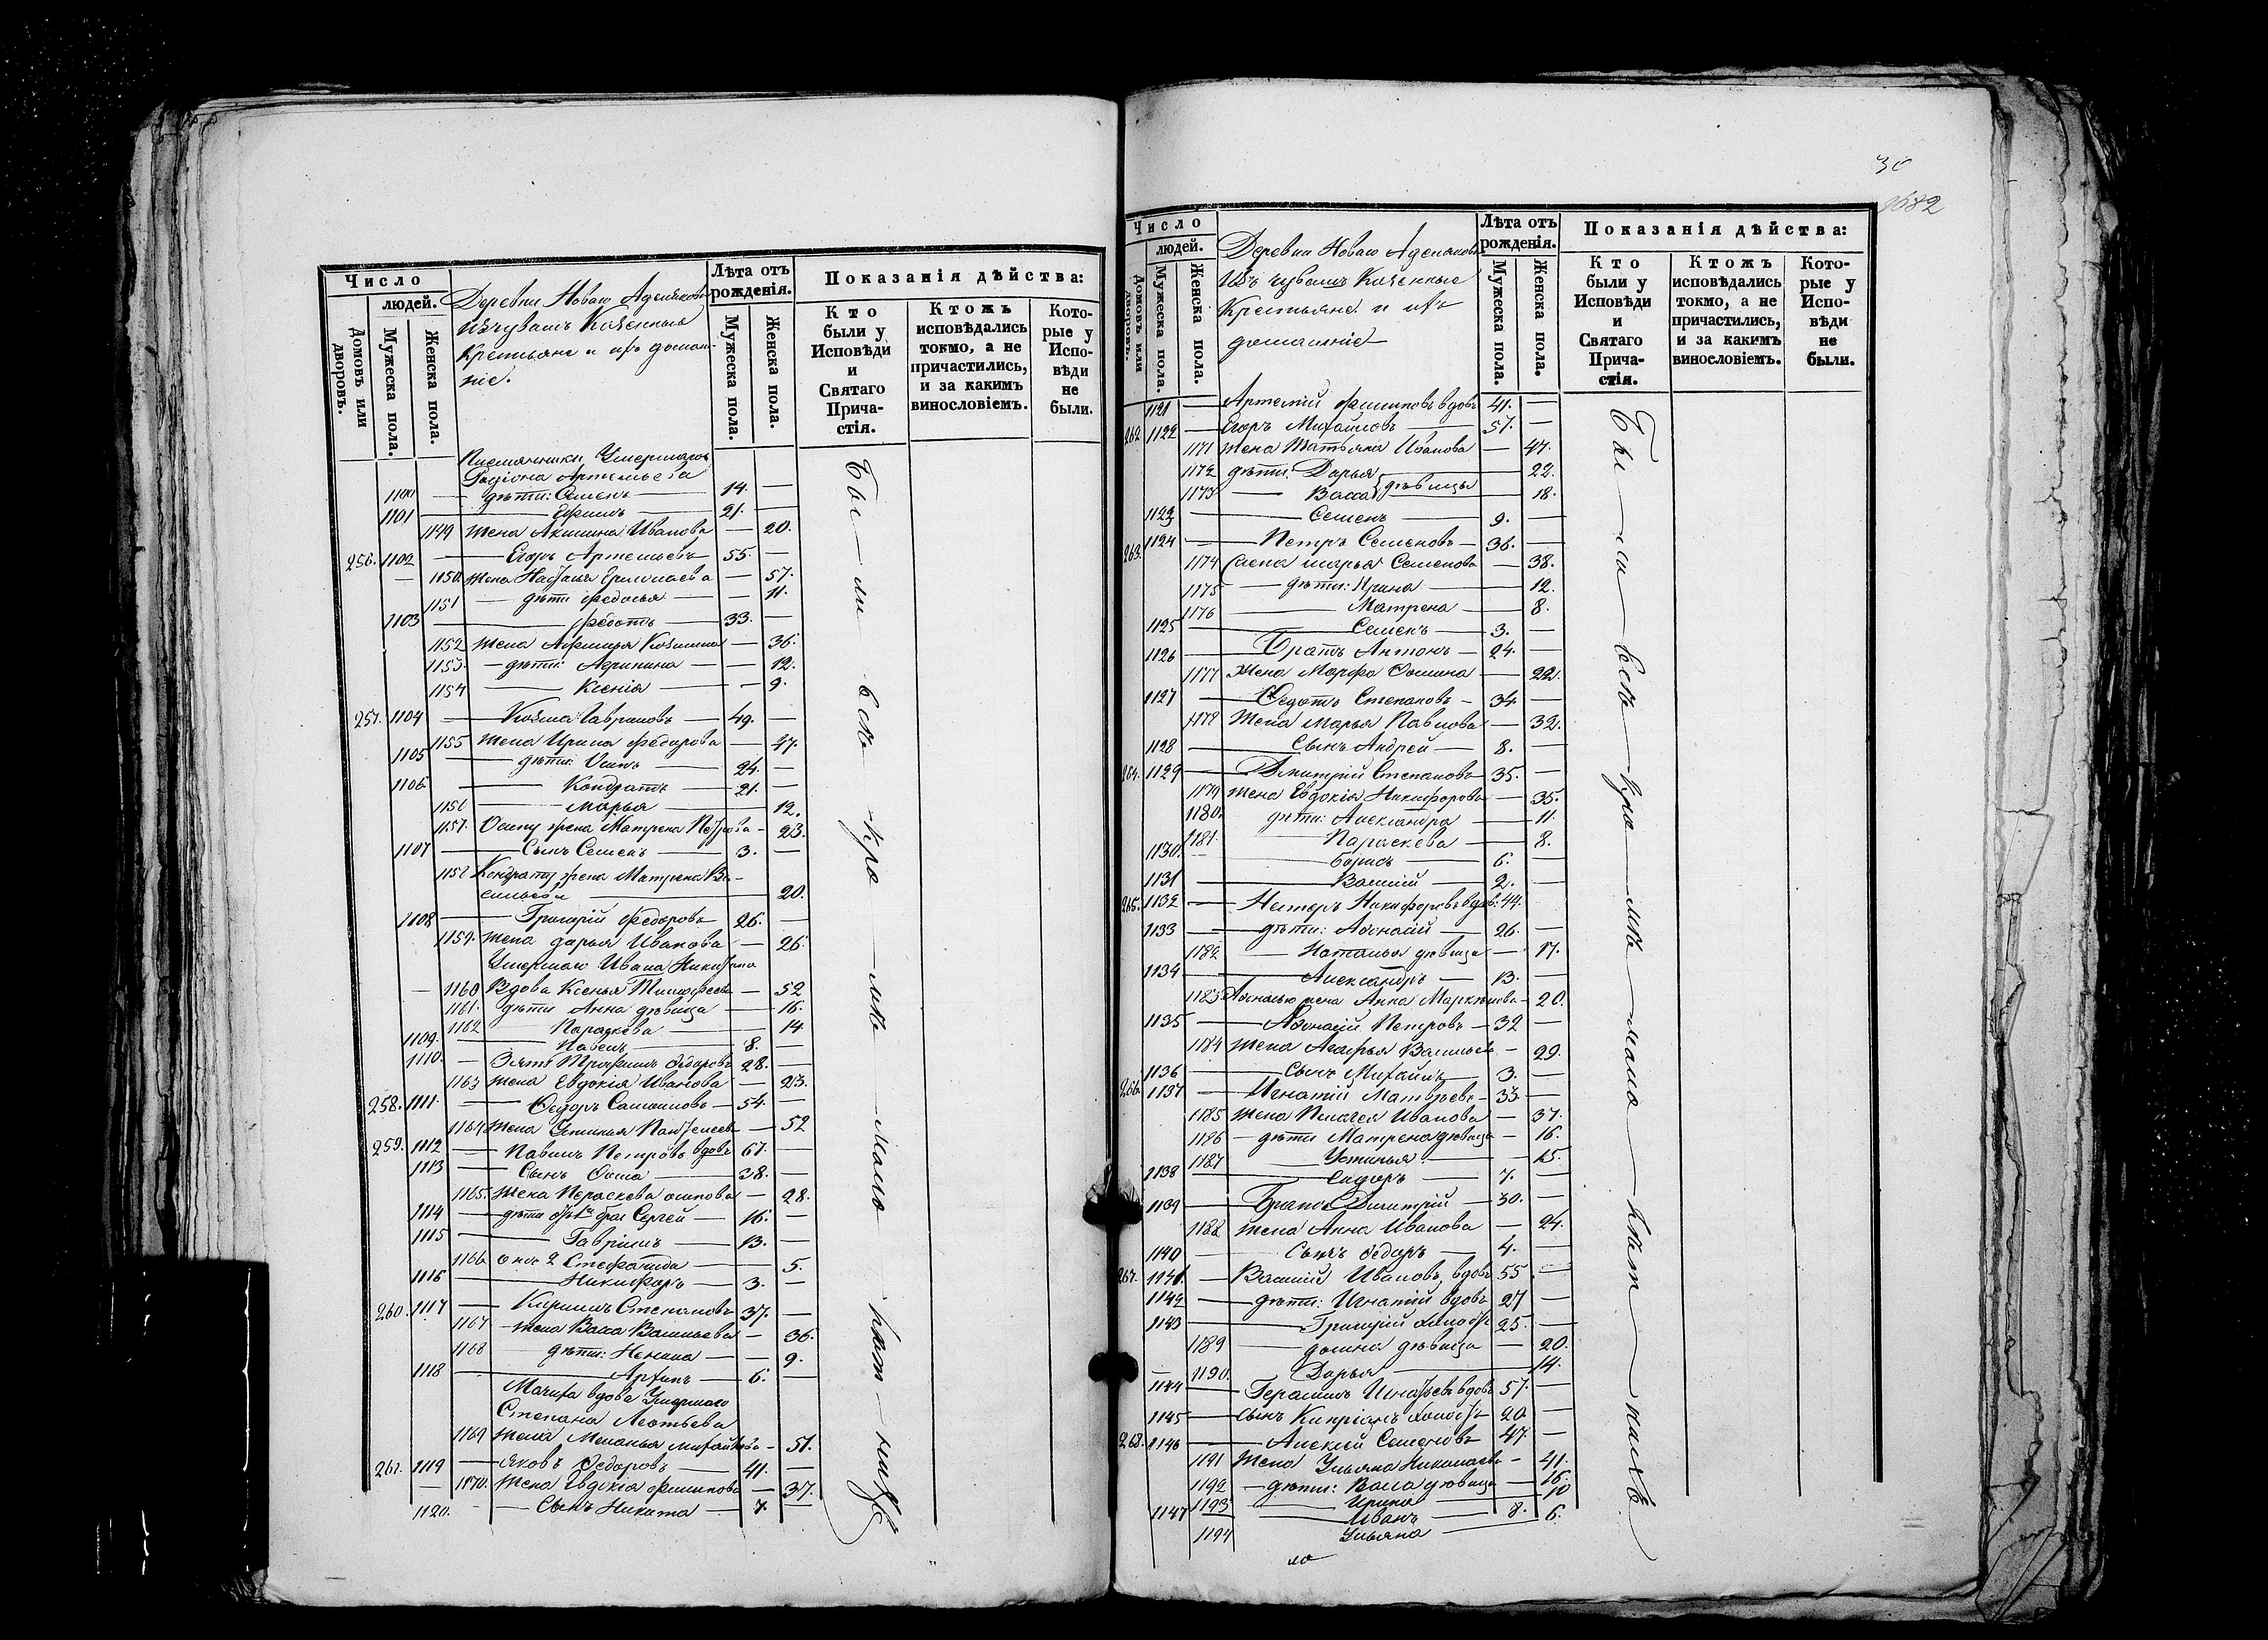 Число
людей.
Домовъ или дворовъ.
Мужеска пола.
Женска пола.
Деревни Новаго Аделякова
изъ чувашъ Казенные
Крестьяне и ихъ домаш-
ніе.
Лѣта отъ рожденія.
Мужеска пола.
Женска пола.
Показанія дѣйства:
Кто были у Исповѣди и Святаго Причастія.
Ктожъ исповѣдались токмо, а не причастились, и за какимъ винословіемъ.
Которые у Исповѣди не были.
Племянники Умершаго
Родіона Артемьева
1100 — дѣти: Семенъ — 14. —
1101 — Ефимъ — 21. —
1149 жена Акилина Иванова — 20.
256. 1102 — Егоръ Артемьевъ — 55. —
1150. жена Настасья — 57.
1151 — дѣти Федосья — 11.
1103 — Федотъ — 33. —
1152 жена Козмина — 36.
1153. — дѣти: Агрипина — 12.
1154 — Ксенія — 9.
257. 1104 — Козма Гавриловъ — 49. —
1155 жена Ирина Федорова — 47.
1105 — дѣти: Осипъ — 24. —
1106 — Кондратъ — 21. —
1156 — Марья — 12.
1157. Осипу жена Матрена Петрова — 23.
1107 — Сынъ Семенъ — 3. —
1158 Кондрату жена Матрена Ва-
сильева — 20.
1108 — Григорій Федоровъ — 26. —
1159. жена Дарья Иванова — 26.
Умершаго Ивана Никитина
1160 Вдова Ксенья Тимофеева — 52
1161. дѣти Анна дѣвица — 16.
1162 — Параскева — 14
1109. — Павелъ — 8. —
1110. — Зять Трофимъ Ѳедоровъ 28. —
1163 жена Евдокія Иванова — 23.
258. 1111. — Ѳедоръ Самойловъ — 54. —
1164 жена Устинья — 52
259. 1112 — Павелъ Петровъ вдовъ 67. —
1113 — Сынъ Ѳома — 38. —
1165. жена Параскева Осипова — 28.
1114 — дѣти отъ 1го брак Сергей — 16. —
1115 — Гаврилъ — 13. —
1166 2 Стефанида — 5.
1116 — Никифоръ — 3. —
260. 1117 — Кирилъ Степановъ 37. —
1167 — жена Васса Васильева — 36.
1168 — дѣти: Ненила — 9.
1118 — Архипъ — 6. —
Мачиха вдова Умершаго
Степана Леонтьева
1169 жена Меланья Михайлова — 51.
261. 1119 — Яковъ Ѳедоровъ — 41. —
1170. жена Евдокія Филипова — 37.
1120. — Сынъ Никита — 7. —
Бы — ли
все
кро — мѣ
мало
лѣт — нихъ
30
1682
Число
людей.
Домовъ или дворовъ.
Мужеска пола.
Женска пола.
Деревни Новаго Аделякова
Изъ чувашъ Казенные
Крестьяне и ихъ
домашніе
Лѣта отъ рожденія.
Мужеска пола.
Женска пола.
Показанія дѣйства:
Кто были у Исповѣди и Святаго Причастія.
Ктожъ исповѣдались токмо, а не причастились, и за какимъ винословіемъ.
Которые у Исповѣди не были.
1121 — Артемій Филиповъ вдовъ 41. —
262 1122 — Егоръ Михайловъ — 57. —
1171 жена Татьяна Иванова — 47.
1172 дѣти: Дарья — 22.
1173 — Васса } дѣвицы — 18.
1123 — Семенъ — 9. —
263. 1124 — Петръ Семеновъ — 36. —
1174 жена Марья Семенова — 38.
1175 — дѣти: Ирина — 12.
1176 — Матрена — 8.
1125 — Семенъ — 3. —
1126 — Братъ Антонъ — 24. —
1177 жена Марфа Ѳомина — 22.
1127 — Ѳедотъ Степановъ — 34 —
1178 жена Марья Павлова — 32.
1128 — Сынъ Андрей — 8. —
264. 1129 — Дмитрій Степановъ 35. —
1179 жена Евдокія Никифорова — 35.
1180. дѣти: Александра — 11.
1181. — Параскева — 8.
1130. — Борисъ — 6. —
1131 — Василій — 2. —
265. 1132 — Нестеръ Никифоровъ вдов. 44. —
1133 — дѣти: Аѳонасій — 26. —
1182 — Наталья дѣвица — 17.
1134 — Александръ — 13. —
1183 Аѳонасью жена Анна — 20.
1135 — Аѳонасій Петровъ — 32 —
1184 жена Агафья Васильева — 29.
1136 — Сынъ Михаилъ — 3. —
266. 1137 — Игнатій Матвѣевъ — 33. —
1185 жена Пелагея Иванова — 37.
1186 — дѣти Матрена дѣвица — 16.
1187 — Устинья — 15.
1138 — Сидоръ — 7. —
1139 — Братъ Димитрій — 30. —
1188 жена Анна Иванова — 24.
1140 — Сынъ Ѳедоръ — 4. —
267. 1141. — Василій Ивановъ, вдовъ 55 —
1142 — дѣти: Игнатій вдовъ 27 —
1143 — Григорій холостъ 25. —
1189 — дѣвица — 20.
1190. — Дарья — 14.
1144 — Герасимъ Игнатьевъ вдовъ 57. —
1145 — сынъ Кипріянъ холостъ 20 —
268. 1146 — Алексей Семеновъ 47 —
1191 жена Ульяна Николаева — 41.
1192 — дѣти: Васса дѣвица — 16.
1193 — Ирина — 10
1147 — Иванъ — 8.
1194 Ульяна — 6.
Бы — ли
все
кро — мѣ
мало
лѣт — нихъ